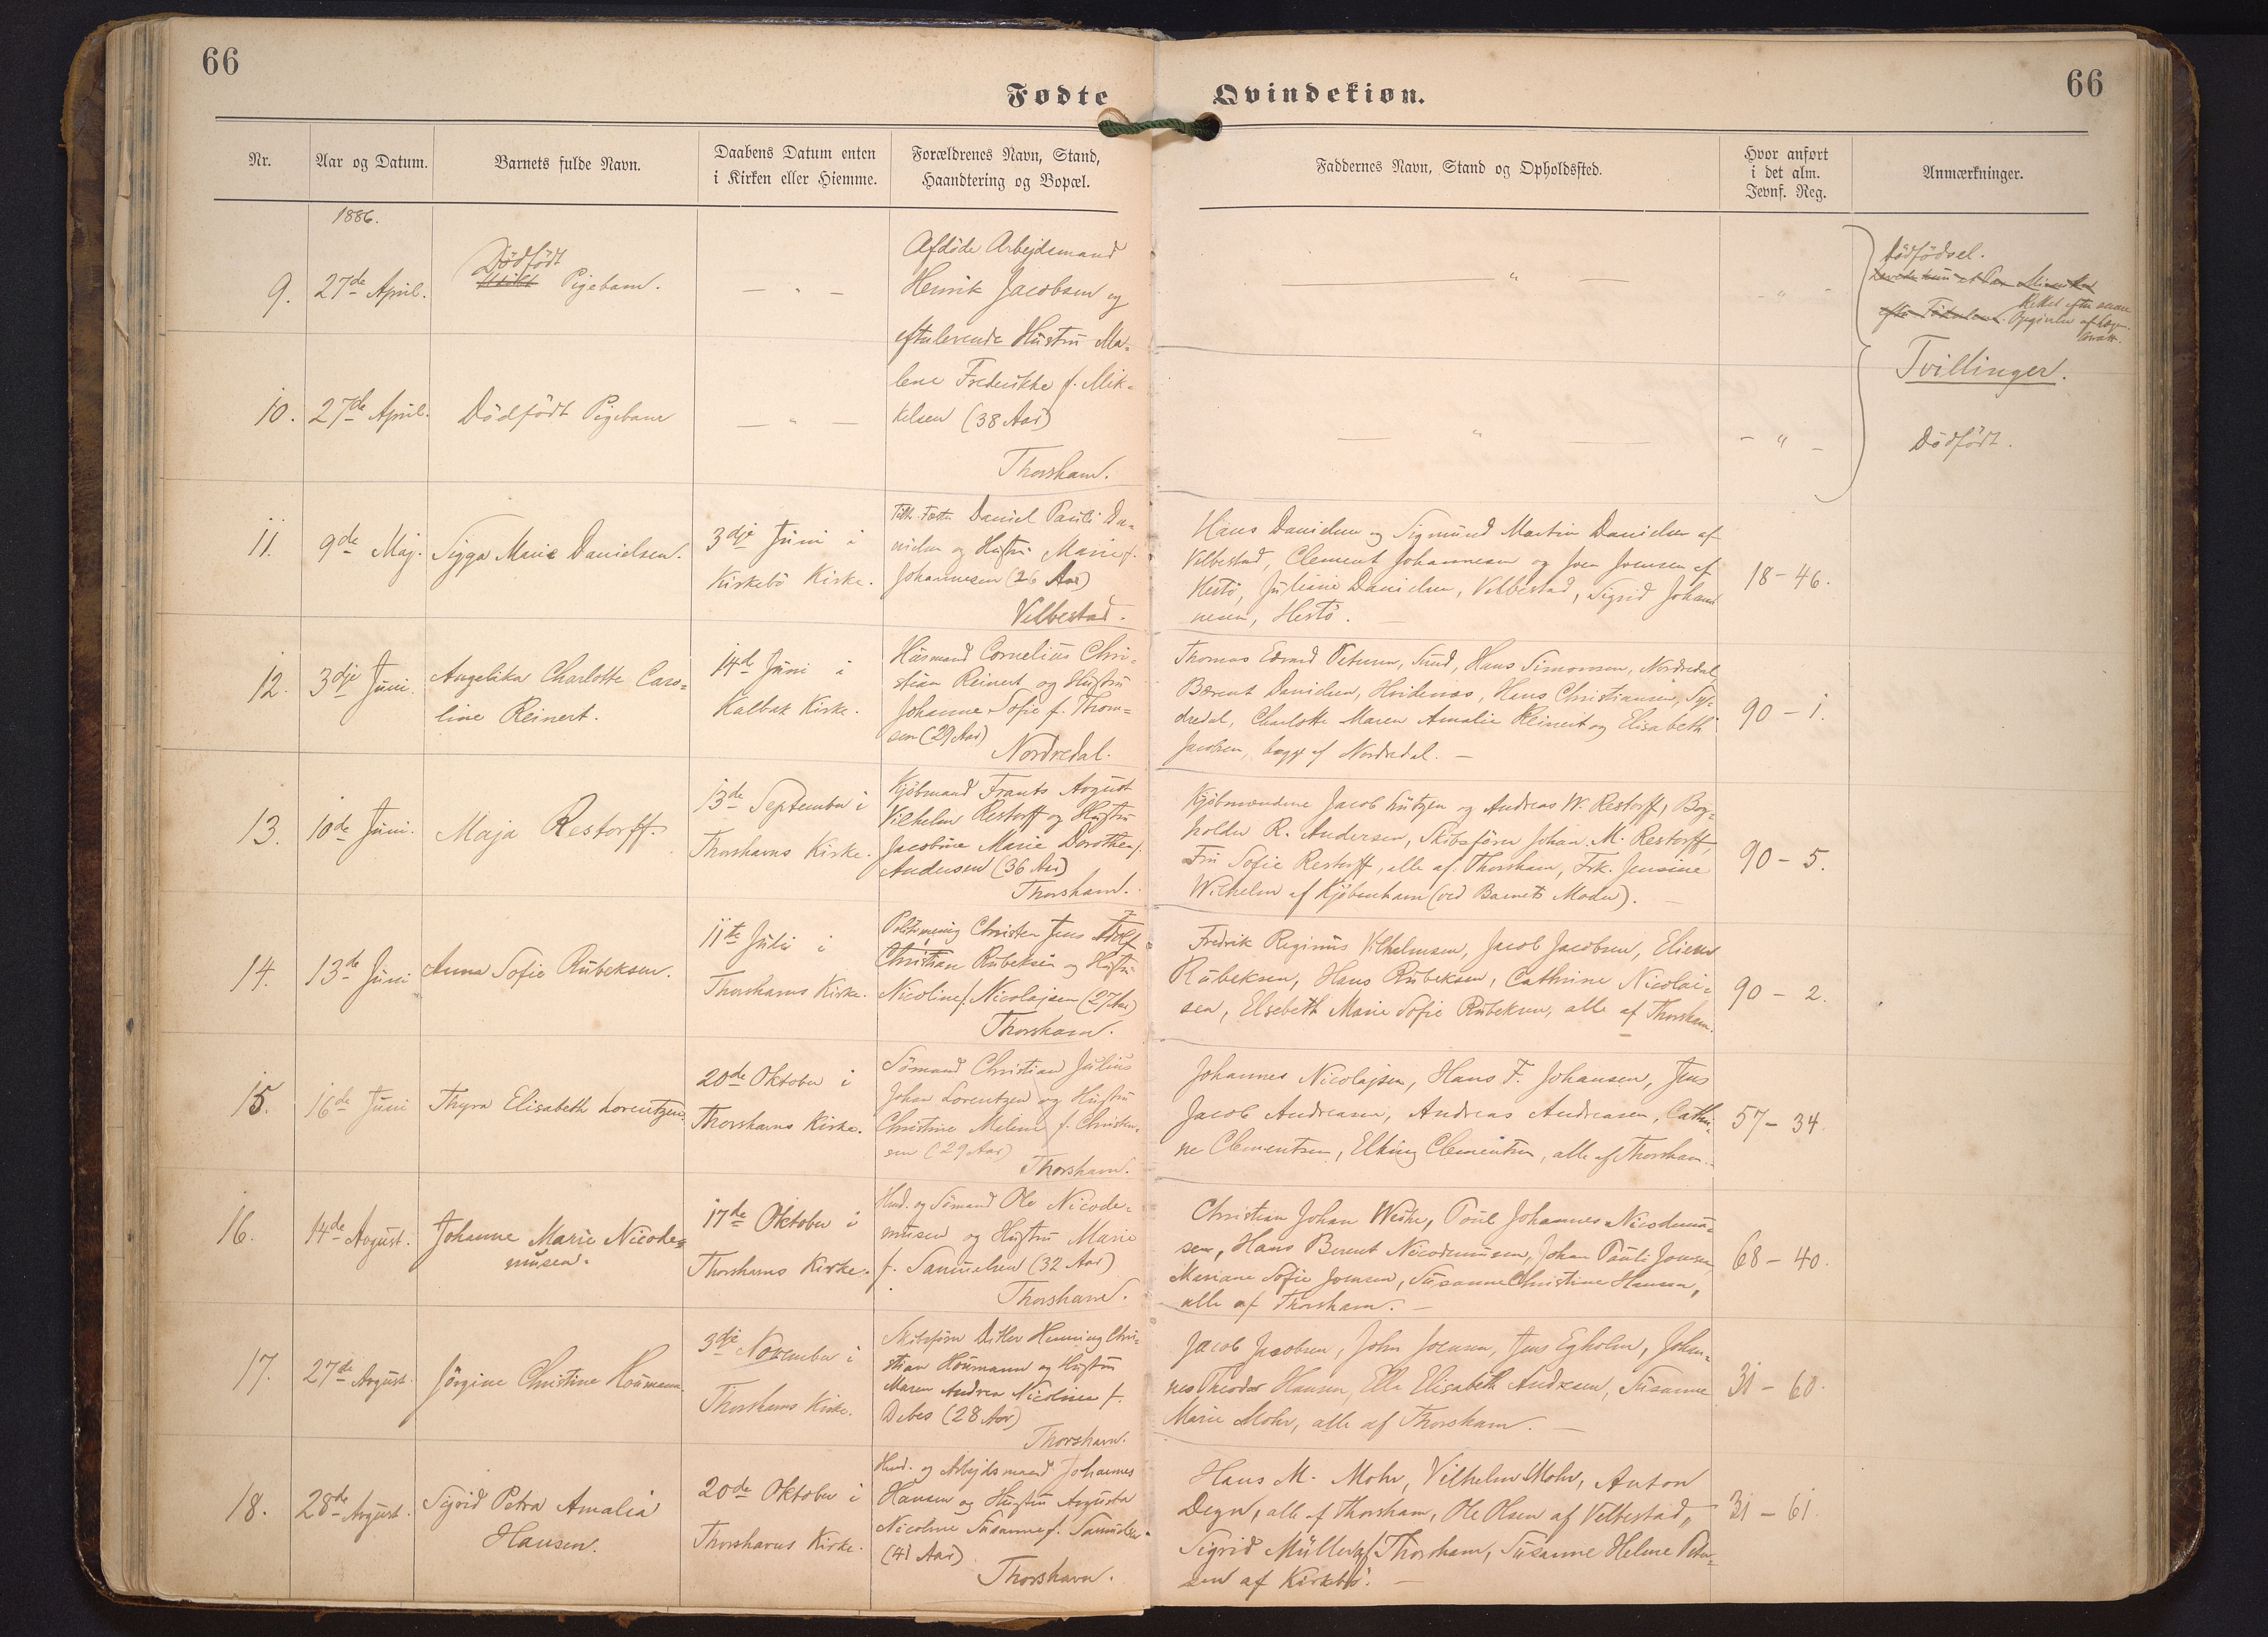 66
66
Fødte Qvindekiøn.
Nr.
Aar og Datum.
Barnets fulde Navn.
Daabens Datum enten
i Kirken eller Hiemme.
Forældrenes Navn, Stand,
Haandtering og Bopæl.
Faddernes Navn, Stand og Opholdssted.
Hvor anført
i det alm.
Jevnf. Reg.
Anmærkninger.
1886.
9.
27de April.
Dødfödt
Pigebarn.
Afdöde Arbejdsmand
Henrik Jacobsen og
efterlevende Hustru Ma-
lene Frederikke f. Mik-
kelsen (38 Aar)
Thorshavn.
Dödfödsel.
Tvillinger.
10.
27de April.
Dödfödt Pigebarn
Dödfödt.
11.
9de Maj.
Sigga Marie Danielsen.
3dje Juni i
Kirkebö Kirke.
Daniel Pauli Da-
nielsen og Hustru Marie f.
Johannesen (26 Aar)
Velbestad.
Hans Danielsen og Sigmund Martin Danielsen af
Velbestad, Clement Johannesen og Joen Joensen af
Hestö, Juliane Danielsen, Velbestad, Sigrid Johan-
nesen, Hestö.
18 - 46.
12.
3dje Juni.
Angelika Charlotte Caro-
line Reinert.
14de Juni i
Kalbak Kirke.
Husmand Cornelius Chri-
stian Reinert og Hustru
Johanne Sofie f. Thom-
sen (29 Aar)
Nordredal.
Thomas Edvard Petersen, Sund, Hans Simonsen, Nordredal,
Bærent Danielsen, Hvidenæs, Hans Christiansen, Sy-
dredal, Charlotte Maren Amalie Reinert og Elisabeth
Jacobsen, begge af Nordredal.
90 - 1.
13.
10de Juni.
Maja Restorff.
13de September i
Thorshavns Kirke.
Kjöbmand Frants August
Vilhelm Restorff og Hustru
Jacobine Marie Dorothea f.
Andersen (36 Aar)
Thorshavn.
Kjöbmændene Jacob Lützen og Andreas W. Restorff, Bog-
holder R. Andersen, Skibsförer Johan M. Restorff,
Fru Sofie Restorff, alle af Thorshavn, Frk. Jensine
Wilhelm af Kjöbenhavn (ved Barnets Moder).
90 - 5.
14.
13de Juni
Anna Sofie Rubeksen.
11te Juli i
Thorshavns Kirke.
Christen Jens
Christian Rubeksen og Hustru
Nicoline f. Nicolajsen (27 Aar)
Thorshavn.
Fredrik Reginus Vilhelmsen, Jacob Jacobsen, Elieser
Rubeksen, Hans Rubeksen, Cathrine Nicolai-
sen, Elsebeth Marie Sofie Rubeksen, alle af Thorshavn.
90 - 2.
15.
16de Juni
Thyra Elisabeth Lorentzen.
20de Oktober i
Thorshavns Kirke.
Sömand Christian Julius
Johan Lorentzen og Hustru
Christine Malene f. Christen-
sen (29 Aar)
Thorshavn.
Johannes Nicolajsen, Hans F. Johansen, Jens
Jacob Andreasen, Andreas Andreasen, Cathri-
ne Clementsen, Elking Clementsen, alle af Thorshavn.
57 - 34.
16.
14de August.
Johanne Marie Nicode-
musen.
17de Oktober i
Thorshavns Kirke.
Hmd. og Sömand Ole Nicode-
musen og Hustru Marie
f. Samuelsen (32 Aar)
Thorshavn.
Christian Johan Weihe, Poul Johannes Nicodemu-
sen, Hans Berent Nicodemusen, Johan Pauli Joensen,
Mariane Sofie Joensen, Susanne Christine Hansen,
alle af Thorshavn.
68 - 40.
17.
27de August.
Jörgine Christine Houmann.
3dje November i
Thorshavns Kirke.
Skibsförer Ditlev Henning Chri-
stian Houmann og Hustru
Maren Andrea Nicoline f.
Debes (28 Aar)
Thorshavn.
Jacob Jacobsen, John Joensen, Jens Egholm, Johan-
nes Theodor Hansen, Elle Elisabeth Andresen, Susanne
Marie Mohr, alle af Thorshavn.
31 - 60.
18.
28de August.
Sigrid Petra Amalia
Hansen.
20de Oktober i
Thorshavns Kirke.
Hmd. og Arbejdsmand Johannes
Hansen og Hustru Augusta
Nicoline Susanne f. Samuelsen
(41 Aar)
Thorshavn.
Hans M. Mohr, Vilhelm Mohr, Anton
Degn, alle af Thorshavn, Ole Olsen af Velbestad,
Sigrid Müller af Thorshavn, Susanne Helene Peter-
sen af Kirkebö.
31 - 61.